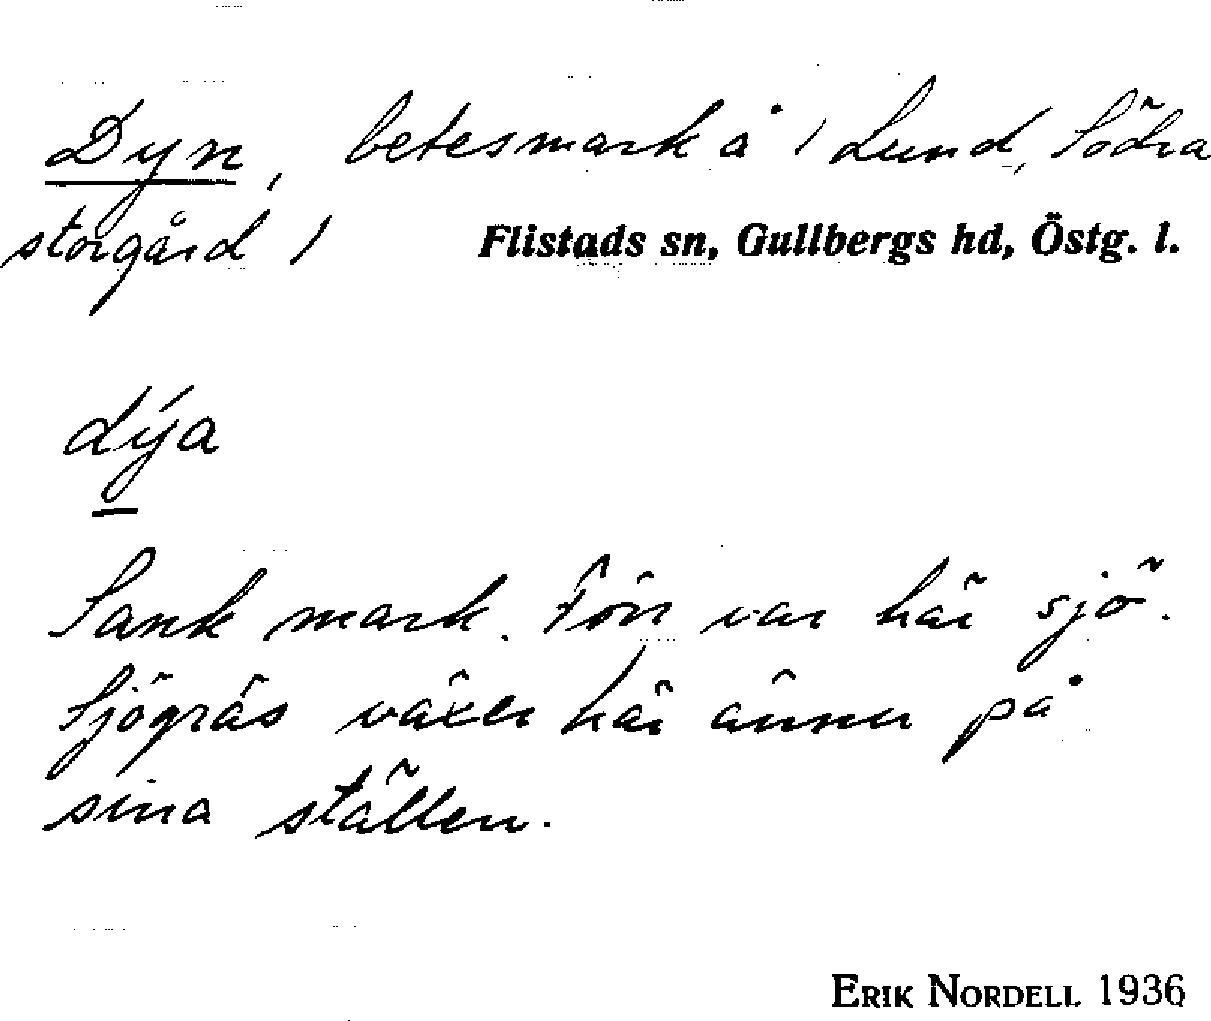 Dyn, betesmark å / Lund, Södra
storgård / Flistads sn, Gullbergs hd, Östg. l.
dýa
Sank mark. Förr var här sjö.
Sjögräs växer här ännu på
sina ställen.
ERIK NORDELL 1936